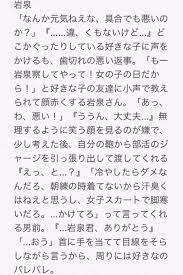 岩泉
「なんか元気ねえな、具合でも悪いの
か？」『……違、くもないけど…』ど
こかぐったりしている好きな子に声を
かけるも、歯切れの悪い返事。「もー
岩泉察してやって！女の子の日だか
ら！」と好きな子の友達に小声で教え
られて顔赤くする岩泉さん。「あっ、
わ、悪い！」『ううん、大丈夫…』無
理するように笑う顔を見るのが嫌で、
少し考えた後、自分の鞄から部活の
ジャージを引っ張り出して渡してくれる
『えっ、と…？』「冷やしたらダメな
んだろ、朝練の時着てないから汗臭く
はねえと思うし、女子スカートで脚寒
いだろ。…かけてろ」って言ってくれ
る男前。『…岩泉君、ありがとう』
「…おう」首に手を当てて目線をそら
しながら言うから、周りには好きなの
バレバレ。